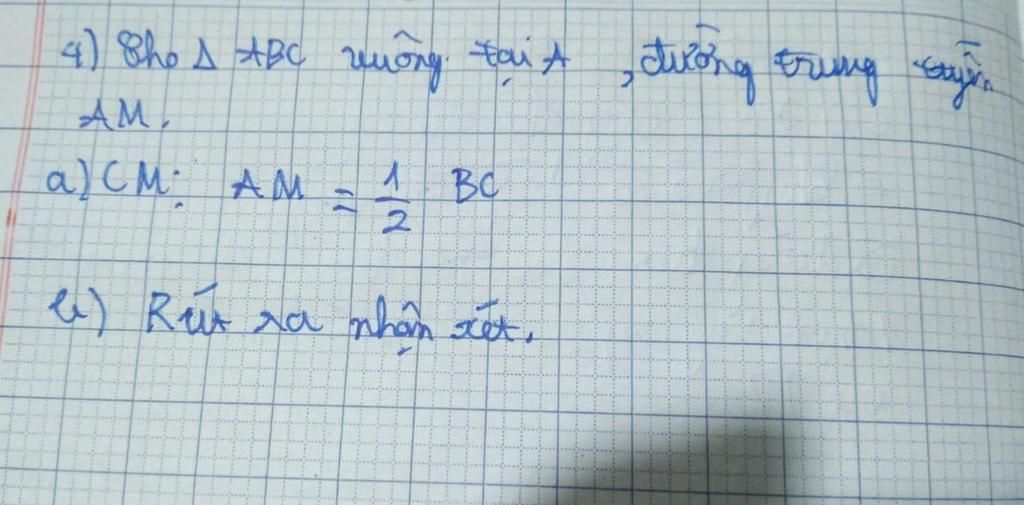 4) Cho Δ ABC vuông tại A, đường trung tuyến
AM.
a) CM: AM = 1/2 BC
b) Rút ra nhận xét.